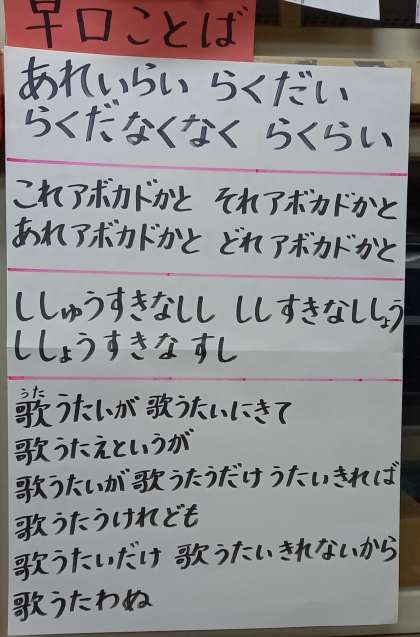 早口ことば
あれいらい らくだい
らくだなくなく らくらい
これアボカドかと それアボカドかと
あれアボカドかと どれアボカドかと
ししゅうすきなしし ししすきなししょう
ししょうすきなすし
うた
歌うたいが歌うたいにきて
歌うたえというが
歌うたいが歌うたうだけうたいきれば
歌うたうけれども
歌うたいだけ 歌うたいきれないから
歌うたわぬ